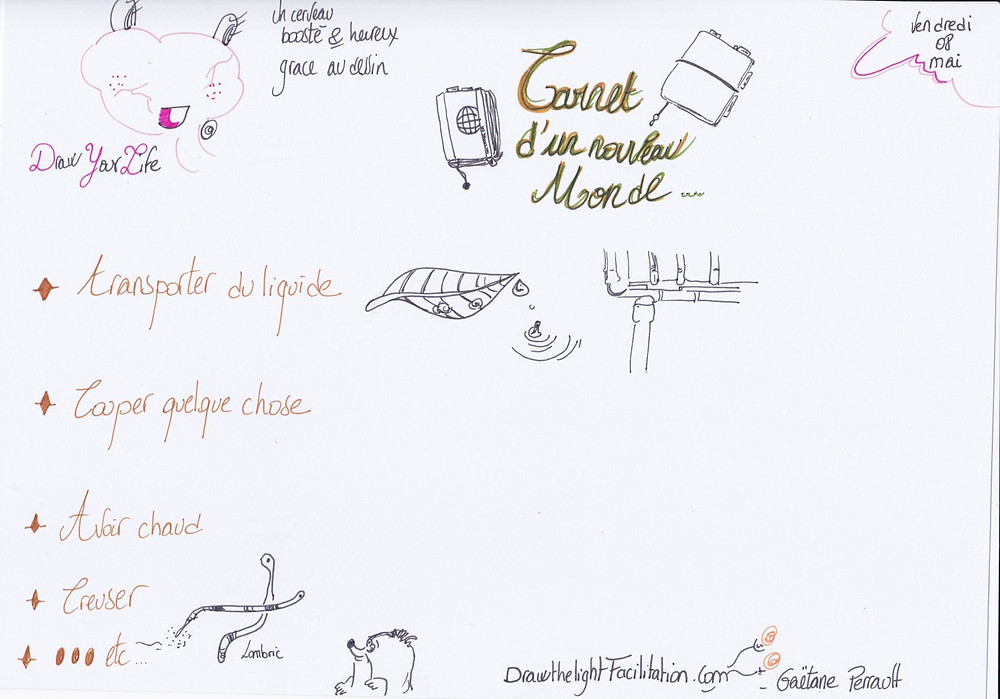 Un cerveau
boosté & heureux
grace au dessin
Draw Your Life
Carnet
d'un nouveau
Monde ...
Vendredi
08
mai
transporter du liquide
Couper quelque chose
Avoir chaud
Creuser
... etc...
Lombric
DrawthelightFacilitation.com
Gaëtane Perrault